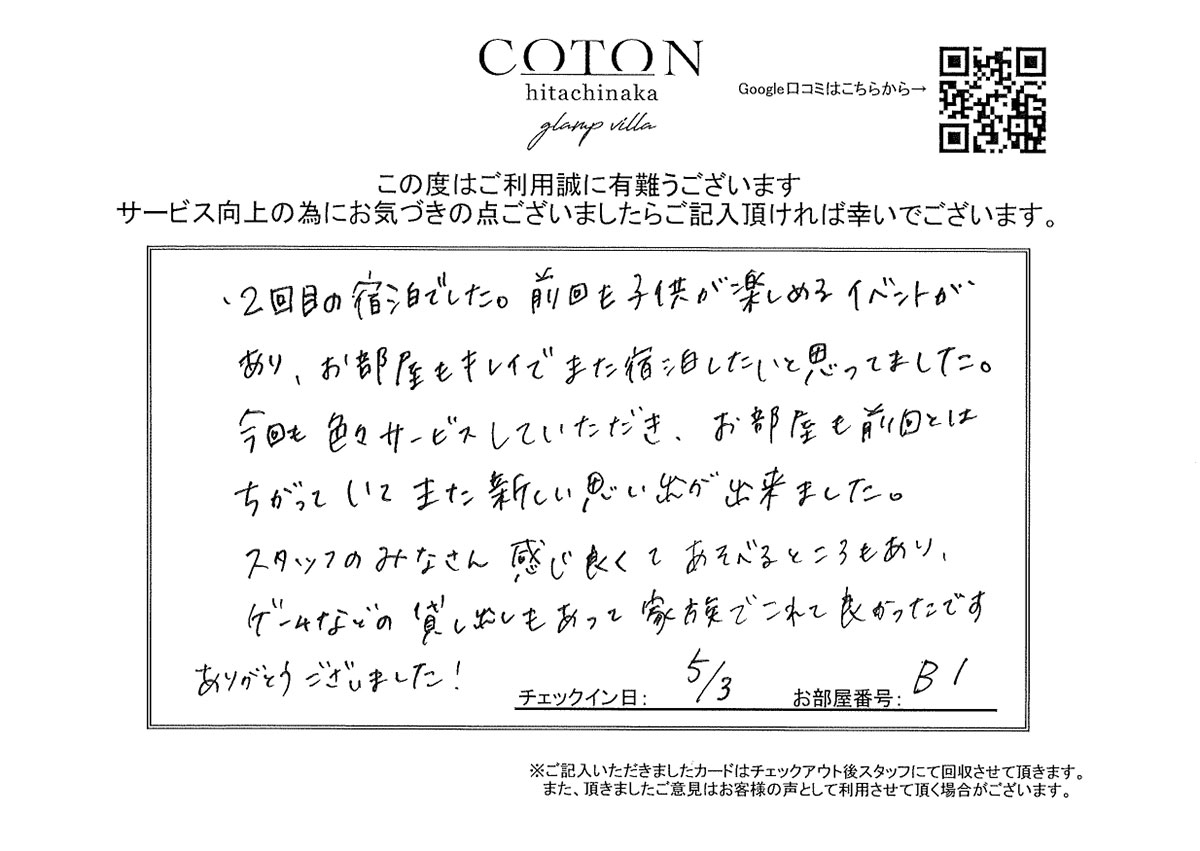 COTON
hitachinaka
glamp villa
Google口コミはこちらから→
この度はご利用誠に有難うございます
サービス向上の為にお気づきの点ございましたらご記入頂ければ幸いでございます。
、2回目の宿泊でした。前回も子供が楽しめるイベントが
あり、お部屋もキレイでまた宿泊したいと思ってました。
今回も色々サービスしていただき、お部屋も前回とは
ちがっていてまた新しい思い出が出来ました。
スタッフのみなさん感じ良くてあそべるところもあり、
ゲームなどの貸し出しもあって家族でこれて良かったです
ありがとうございました!
チェックイン日: 5/3 お部屋番号: B1
※ご記入いただきましたカードはチェックアウト後スタッフにて回収させて頂きます。
また、頂きましたご意見はお客様の声として利用させて頂く場合がございます。